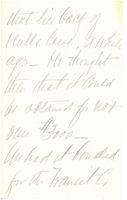 that lies back of
Hulls Cove - A while
ago - He thought
then that it could
be obtained for not
over $3000 -
He had it bonded
for the Transit Co